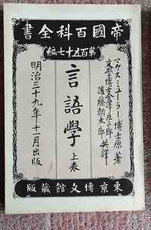 帝國百科全書
第百五十七編
マクス、ミューラー博士原著
文學博士 金澤庄三郎
後藤朝太郎 共譯
言語學
上卷
明治三十九年十一月出版
東京博文館藏版